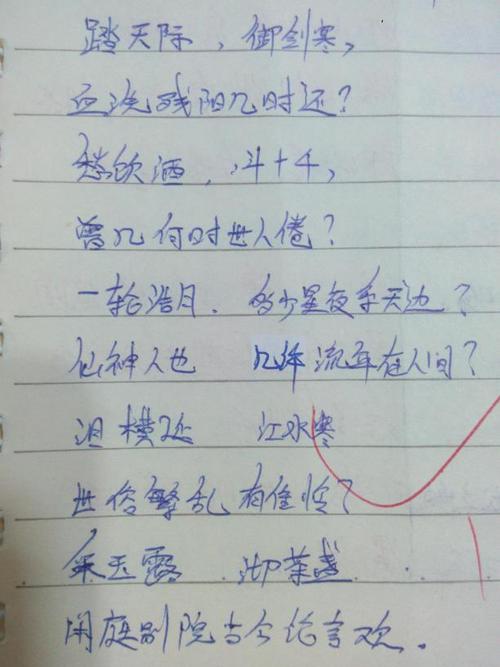 踏天际，御剑寒，
血洗残阳几时还？
愁饮酒，斗十千，
曾几何时世人倦？
一轮浩月．多少星夜系天边？
仙神人也 几许流年在人间？
泪横延 江水寒
世俗繁乱有谁怜？
采玉露 沏茶盏
闲庭别院古今论言欢．